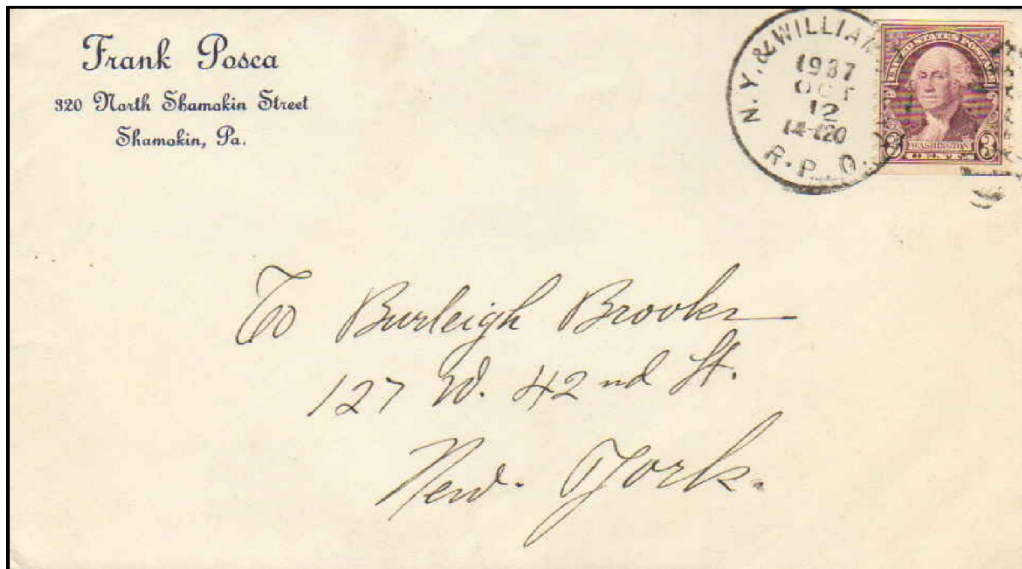 Frank Posca
320 North Shamokin Street
Shamokin, Pa.
N.Y. & WILLIAM
1937
OCT
12
R.P.O.
UNITED STATES POSTAGE
3 WASHINGTON 3
CENTS
To Burleigh Brooks
127 W. 42nd St.
New. York.